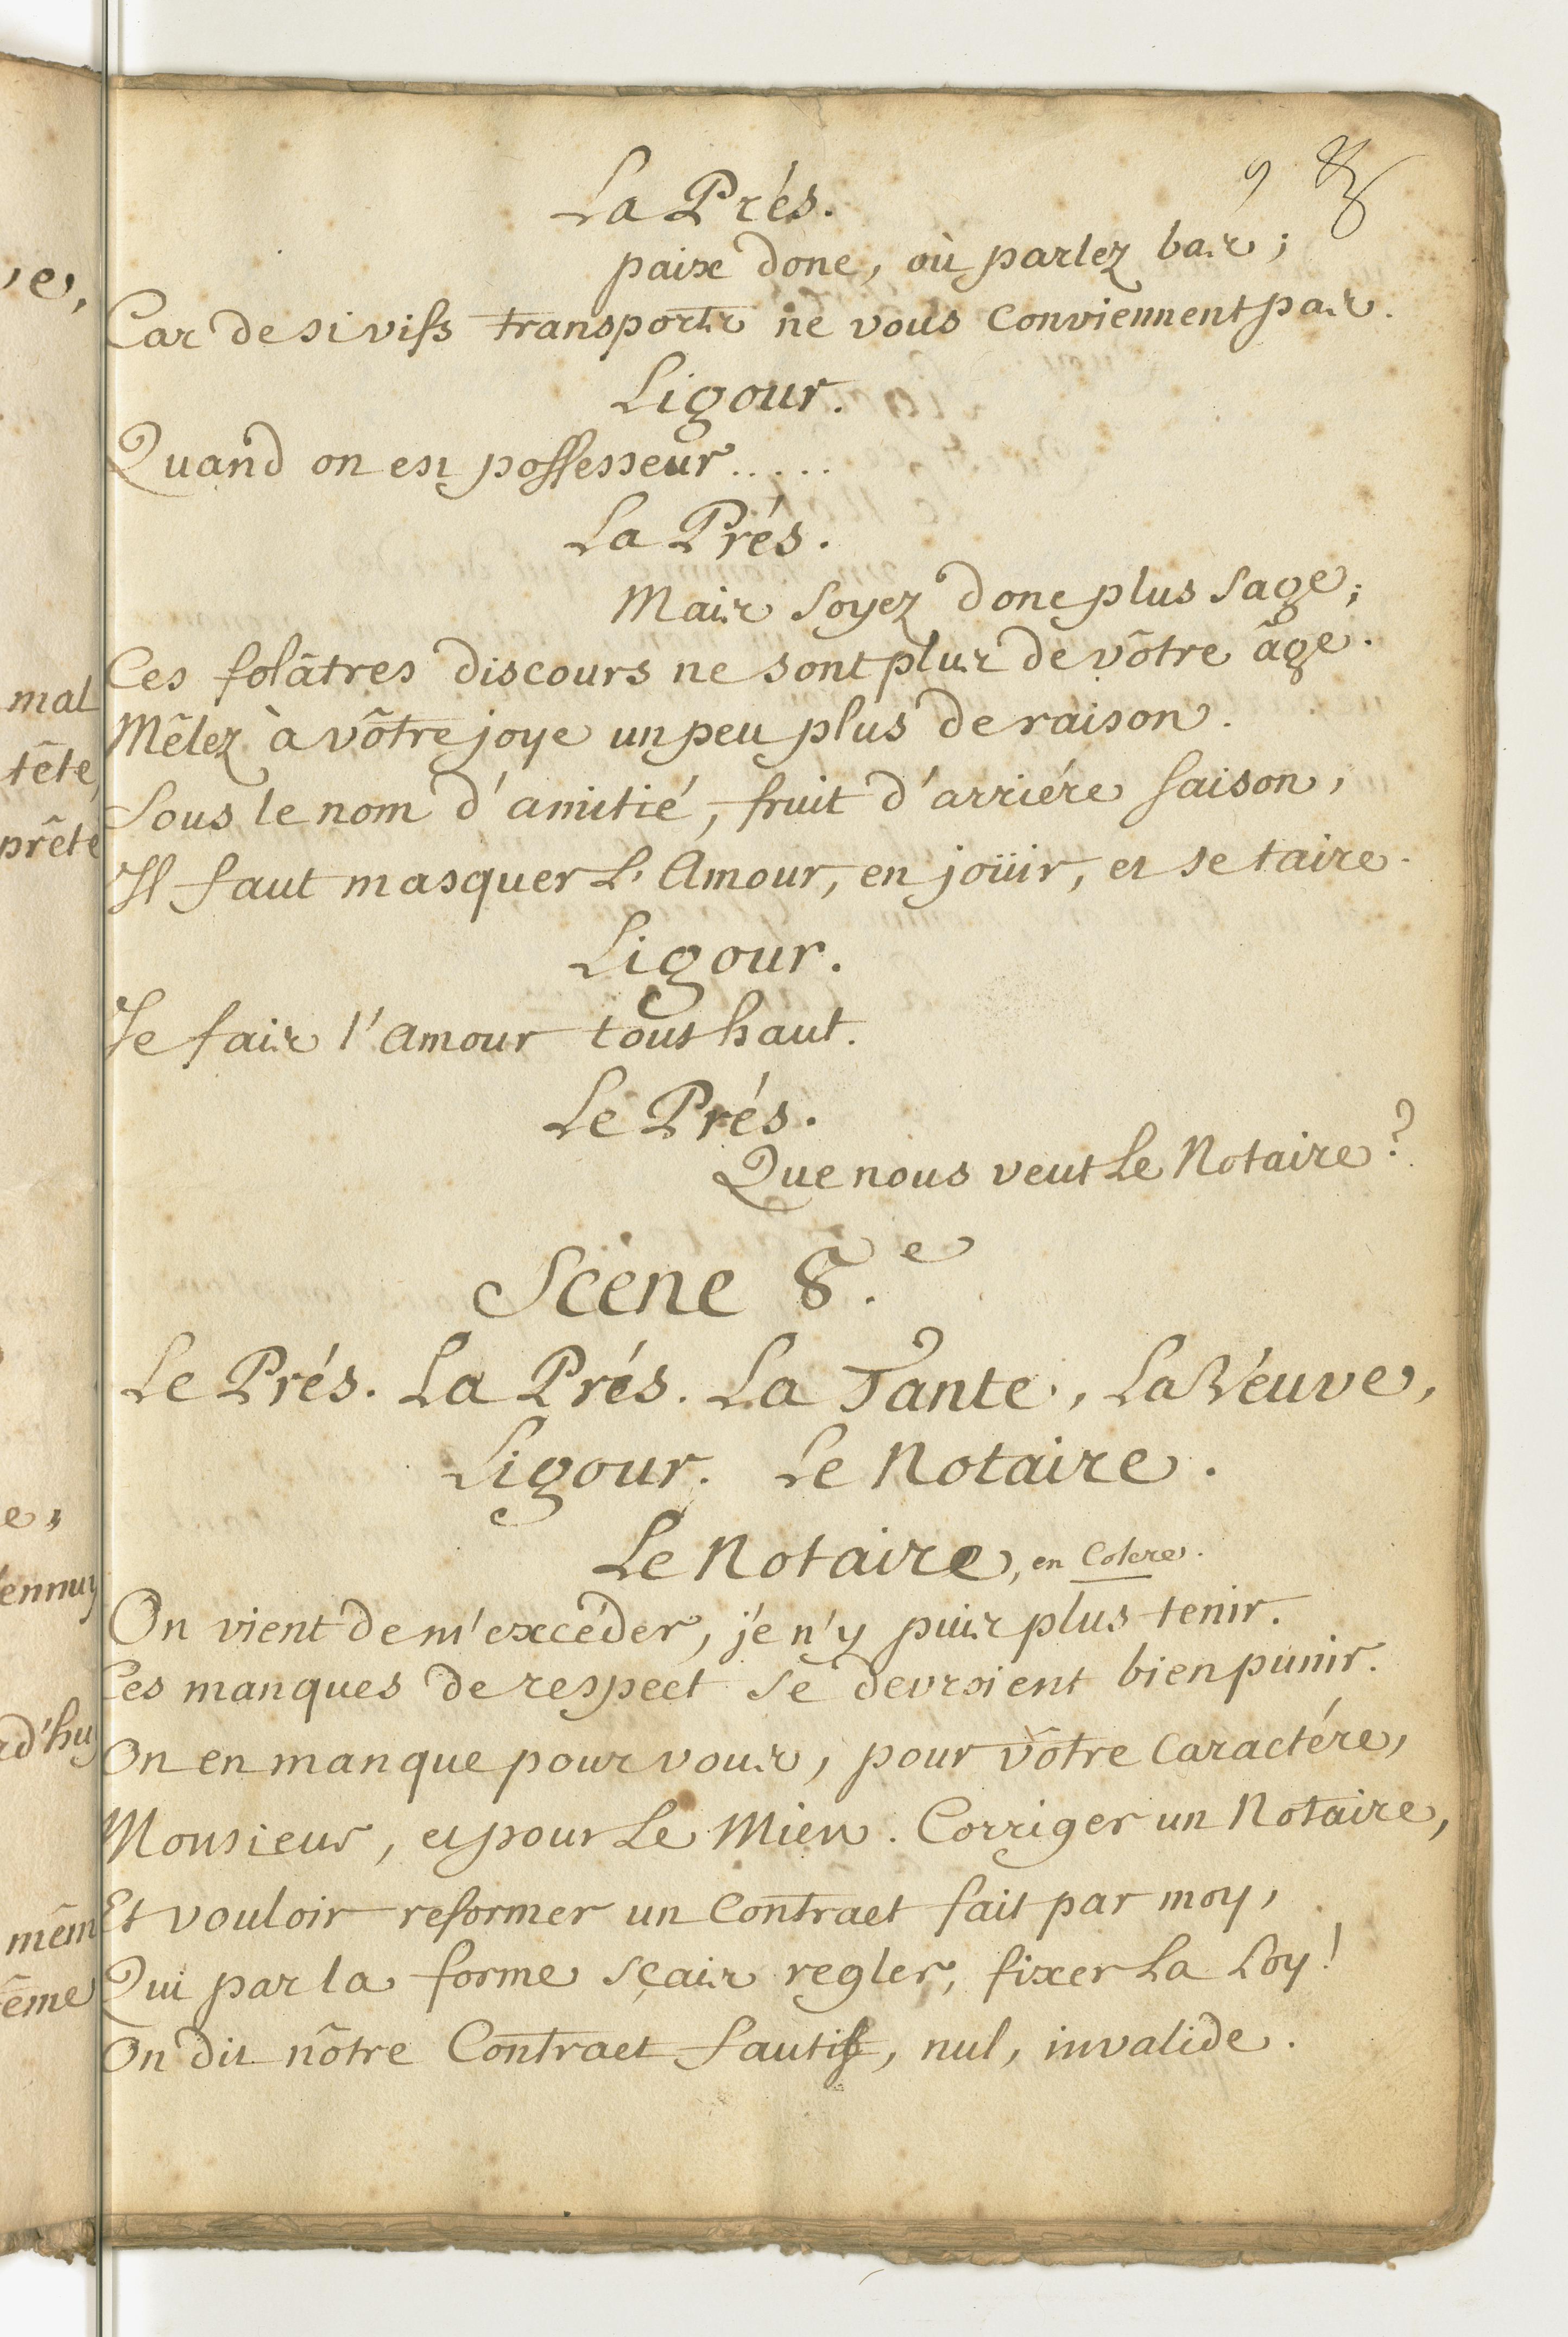 La Prés.
paix donc, où parlez bas;
Car de si vifs transports ne vous conviennent pas.
Ligour.
Quand on est possesseur.....
La Prés.
Mais soyez donc plus sage;
Ces folâtres discours ne sont plus de vôtre âge.
Mêlez à vôtre joye un peu plus de raison.
Sous le nom d'amitié, fruit d'arriére saison,
Il faut masquer L'Amour, en joüir, et se taire.
Ligour.
Je fais l'Amour tout haut.
Le Prés.
Que nous veut Le Notaire?
Scene 8.e
Le Prés. La Prés. La Tante, La Veuve,
Ligour. Le Notaire.
Le Notaire, en Colere.
On vient de m'excéder, je n'y puis plus tenir.
Ces manques de respect se devroient bien punir.
On en manque pour vous, pour vôtre Caractére,
Monsieur, et pour Le Mien. Corriger un Notaire,
Et vouloir reformer un Contract fait par moy,
Qui par la forme sçais regler, fixer La Loy!
On dit nôtre Contract fautif, nul, invalide.
mal
tête,
prête
e,
ennuy
rd'huy
mêm
ême